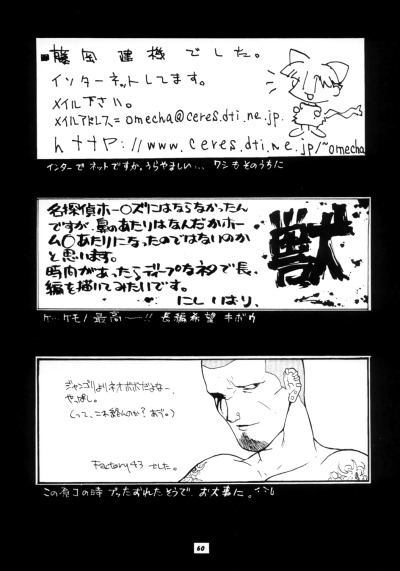 藤岡建機でした。
インターネットしてます。
メイル下さい。
メイルアドレス=omecha@ceres.dti.ne.jp.
http://www.ceres.dti.ne.jp/~omecha
インターでネットですか。うらやましい... ワシもそのうちに
名探偵ホー○ズにはならなかったん
ですが、鼻のあたりはなんだかホー
ム○あたりになったのではないのか
と思います。
時間があったらディープなネタで長
編を描いてみたいです。
にしいはり、
獣
ケ...ケモノ最高ー!! 長編希望 キボウ
ジャングルよりネオボボだよなー、
やっぱし。
(って、これ読んのか? あつ。)
Factory43でした。
この原コの時 ブッたおれたとうで、お大事に。
60